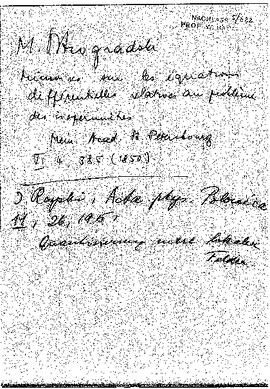 NACHLASS
PROF.
M. Ostrogradski
Mémoires sur les équations
différentielles relatives au problème
des isopérimètres
Mem. Acad. St. Petersbourg
VI 4 385 (1850)
J. Rayski, Acta phys. Polonica
11, 26,
Quantisierung nicht lokaler
Felder